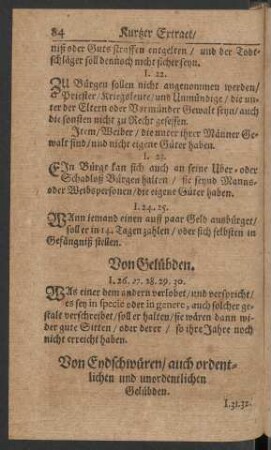 84 Kurtzer Extract/
niß oder Guts straffen entgelten / und der Todt-
schläger soll dennoch nicht sicher seyn.
I. 22.
ZU Bürgen sollen nicht angenommen werden/
Priester/ Kriegsleute/ und Unmündige / die un-
ter der Eltern oder Vormünder Gewalt seyn/ auch
die sonsten nicht zu Recht gesessen.
Item/ Weiber / die unter ihrer Männer Ge-
walt sind/ und nicht eigene Güter haben.
I. 23.
EIn Bürge kan sich auch an seine Uber- oder
Schadloß Bürgen halten / sie seynd Manns-
oder Weibspersonen/ die eigene Güter haben.
I. 24. 25.
WAnn iemand einen auff paar Geld ausbürget/
soll er in 14. Tagen zahlen / oder sich selbsten in
Gefängniß stellen.
Von Gelübden.
I. 26. 27. 28. 29. 30.
WAs einer dem andern verlobet/ und verspricht/
es sey in specie oder in genere, auch solcher ge-
stalt verschreibet/ soll er halten/ sie wären dann wi-
der gute Sitten / oder derer / so ihre Jahre noch
nicht erreicht haben.
Von Eydschwüren/ auch ordent-
lichen und unordentlichen
Gelübden.
I. 31. 32.